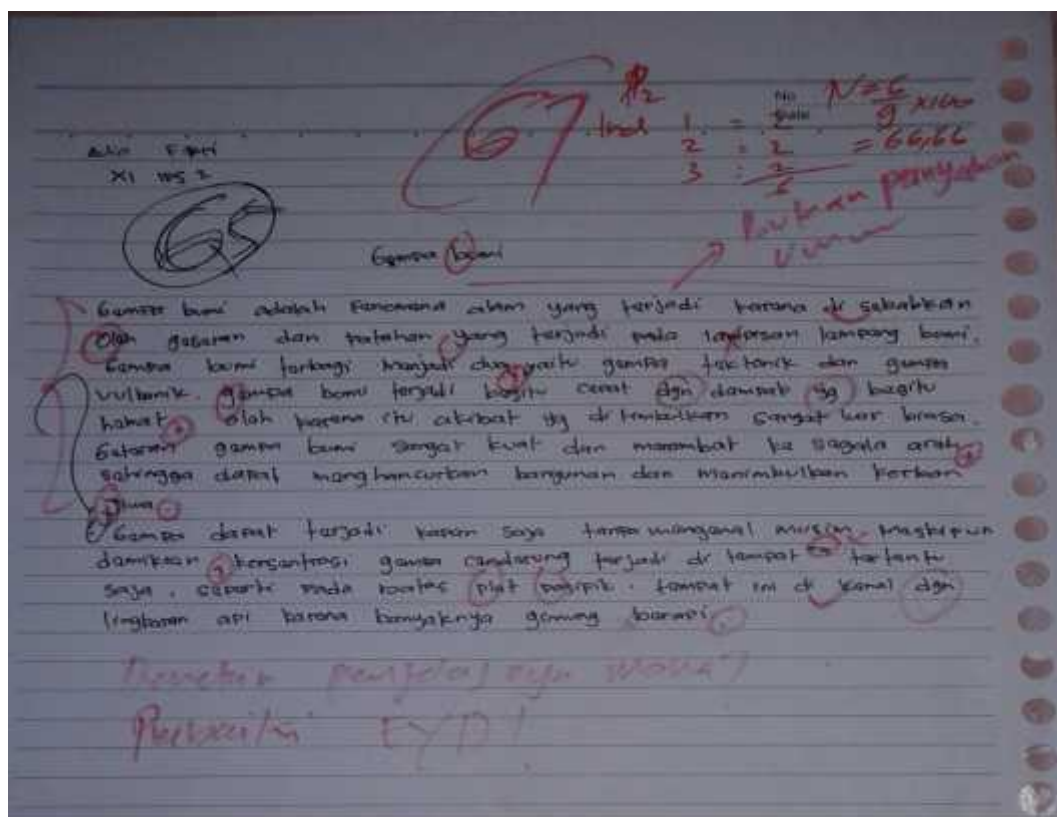 67
R2
Ind
No
N = 6/9 x 100
1. = 2
2 : 2
= 66,66
3 : 2
6
XI IPS 2
65
pernyataan
umum
Gempa bumi
Gempa bumi adalah Fenomena alam yang terjadi karena di sebabkan
Oleh geseran dan patahan yang terjadi pada lempeng bumi.
Gempa bumi terbagi menjadi dua yaitu gempa tektonik dan gempa
vulkanik. gempa bumi terjadi begitu cepat dgn dampak yg begitu
hebat oleh karena itu akibat yg di timbulkan sangat luar biasa.
Getaran gempa bumi sangat kuat dan merambat ke segala arah
sehingga dapat menghancurkan bangunan dan menimbulkan korban
jiwa
Gempa dapat terjadi kapan saja tanpa mengenal musim meskipun
demikian konsentrasi gempa cenderung terjadi di tempat tertentu
saja, seperti pada batas plat pasipik. tempat ini di kenal dgn
lingkaran api karena banyaknya gunung berapi.
penjelasnya mana?
Perbaiki EYD!